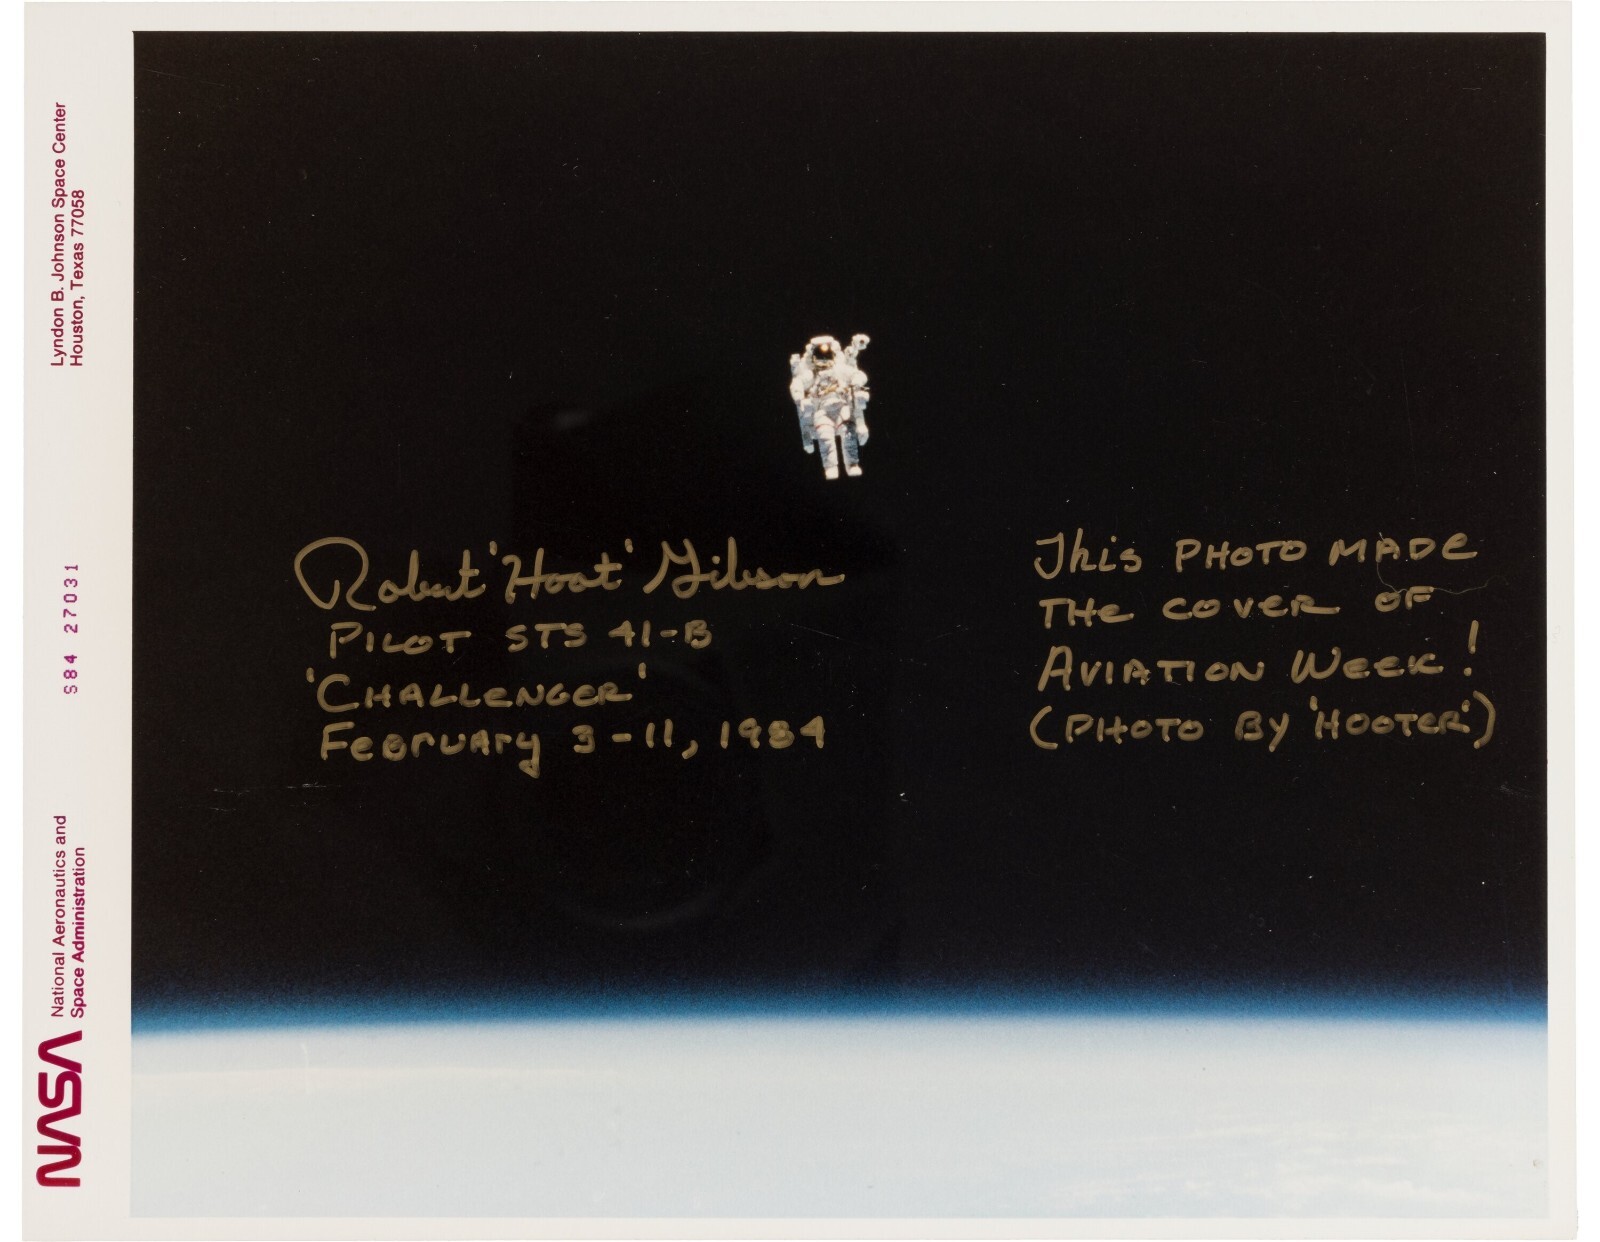 Lyndon B. Johnson Space Center
Houston, Texas 77058
S84 27031
National Aeronautics and
Space Administration
NASA
Robert 'Hoot' Gibson
PILOT STS 41-B
'CHALLENGER'
FEBRUARY 3-11, 1984
This PHOTO MADE
THE COVER OF
AVIATION WEEK!
(PHOTO BY 'HOOTER')